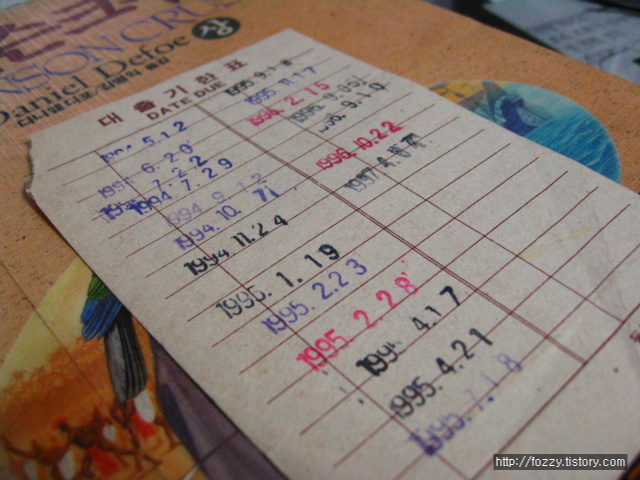 NSON CRUS
Daniel Defoe 상
대출기한표
DATE DUE
5.12
6.20
7.22
1994.7.29
1994 9.12
1994.10.
1994 11.24
1995.1.19
1995.2.23
1995.2.28
4.17
1995.4.21
1995.7.18
1995.9.18
1995 11.17
1996 2.15
1996.10.22
1997
http://fozzy.tistory.com